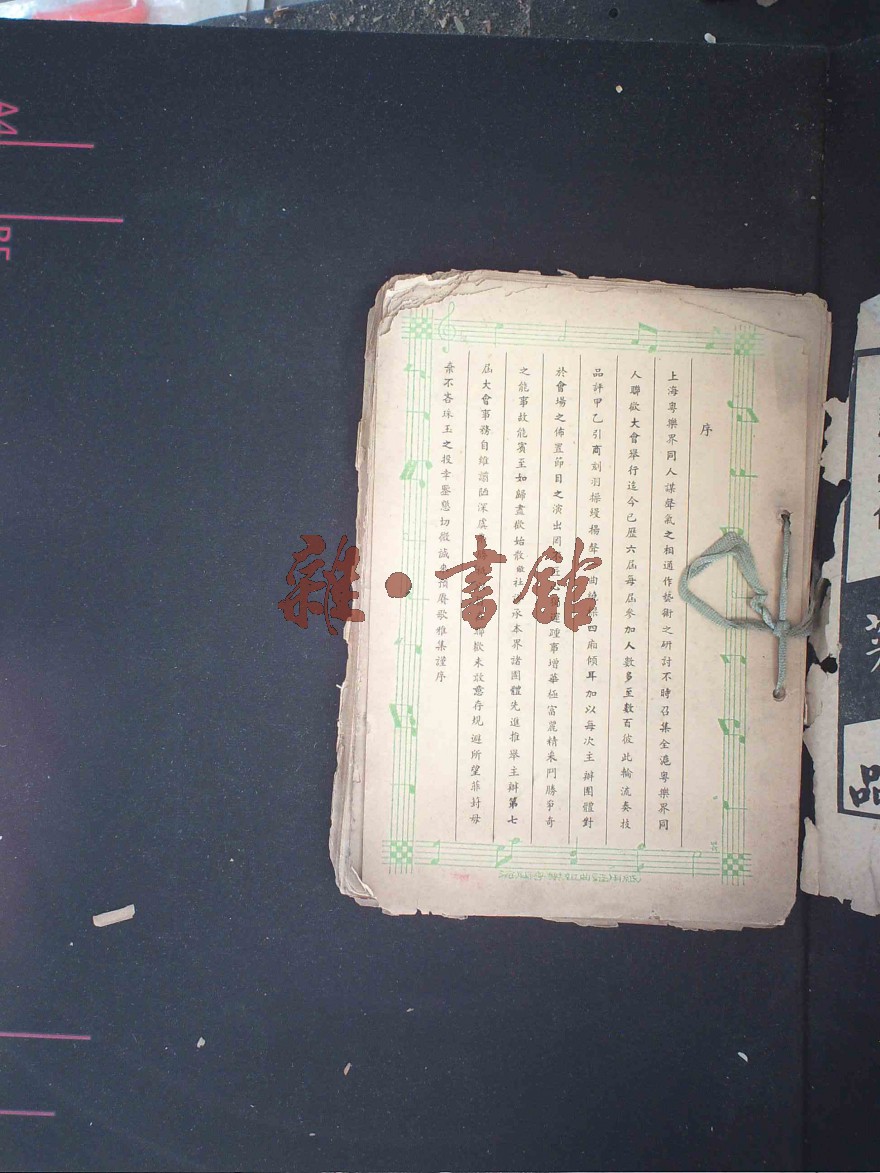 序
上海粵樂界同人謀聲氣之相通作藝術之研討不時召集全滬粵樂界同
人聯歡大會舉行迄今已歷六屆每屆參加人數多至數百彼此輪流奏技
品評甲乙引商刻羽操縵揚聲曲繞梁四廂傾耳加以每次主辦團體對
於會場之佈置節目之演出罔 理事增華極富麗精釆鬥勝爭奇
之能事故能賓至如歸盡歡始散敝社 承本界諸團體先進推舉主辦第七
屆大會事務自維謭陋深虞 聯歡未敢意存規避所望菲葑毋
棄不吝珠玉之投幸鑒懸切微誠 預賡歌雅集謹序
雜·書館
A4
B5
品